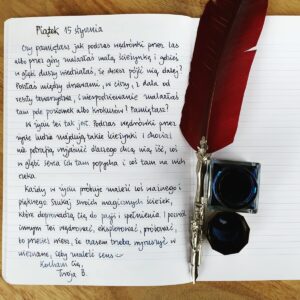 Piątek 15 stycznia
Czy pamiętasz jak podczas wędrówki przez las
albo przez góry znalazłaś małą ścieżynkę i gdzieś
w głębi duszy wiedziałaś, że chcesz pójść nią dalej?
Poszłaś między drzewami, w ciszy, z dala od
reszty towarzystwa, i niespodziewanie znalazłaś
tam pole poziomek albo krokusów! Pamiętasz?
W życiu też tak jest. Podczas wędrówki przez
życie ludzie znajdują takie ścieżynki i chociaż
nie potrafią wyjaśnić dlaczego chcą nią iść, coś
w głębi serca ich tam popycha i coś tam na nich
czeka.
Każdy w życiu próbuje znaleźć coś ważnego i
pięknego. Szukaj swoich magicznych ścieżek,
które doprowadzą Cię do pasji i spełnienia. I pozwól
innym też wędrować, eksplorować, próbować,
bo przecież wiesz, że czasem trzeba wyruszyć w
nieznane, żeby znaleźć sens
Kocham Cię,
Twoja B.